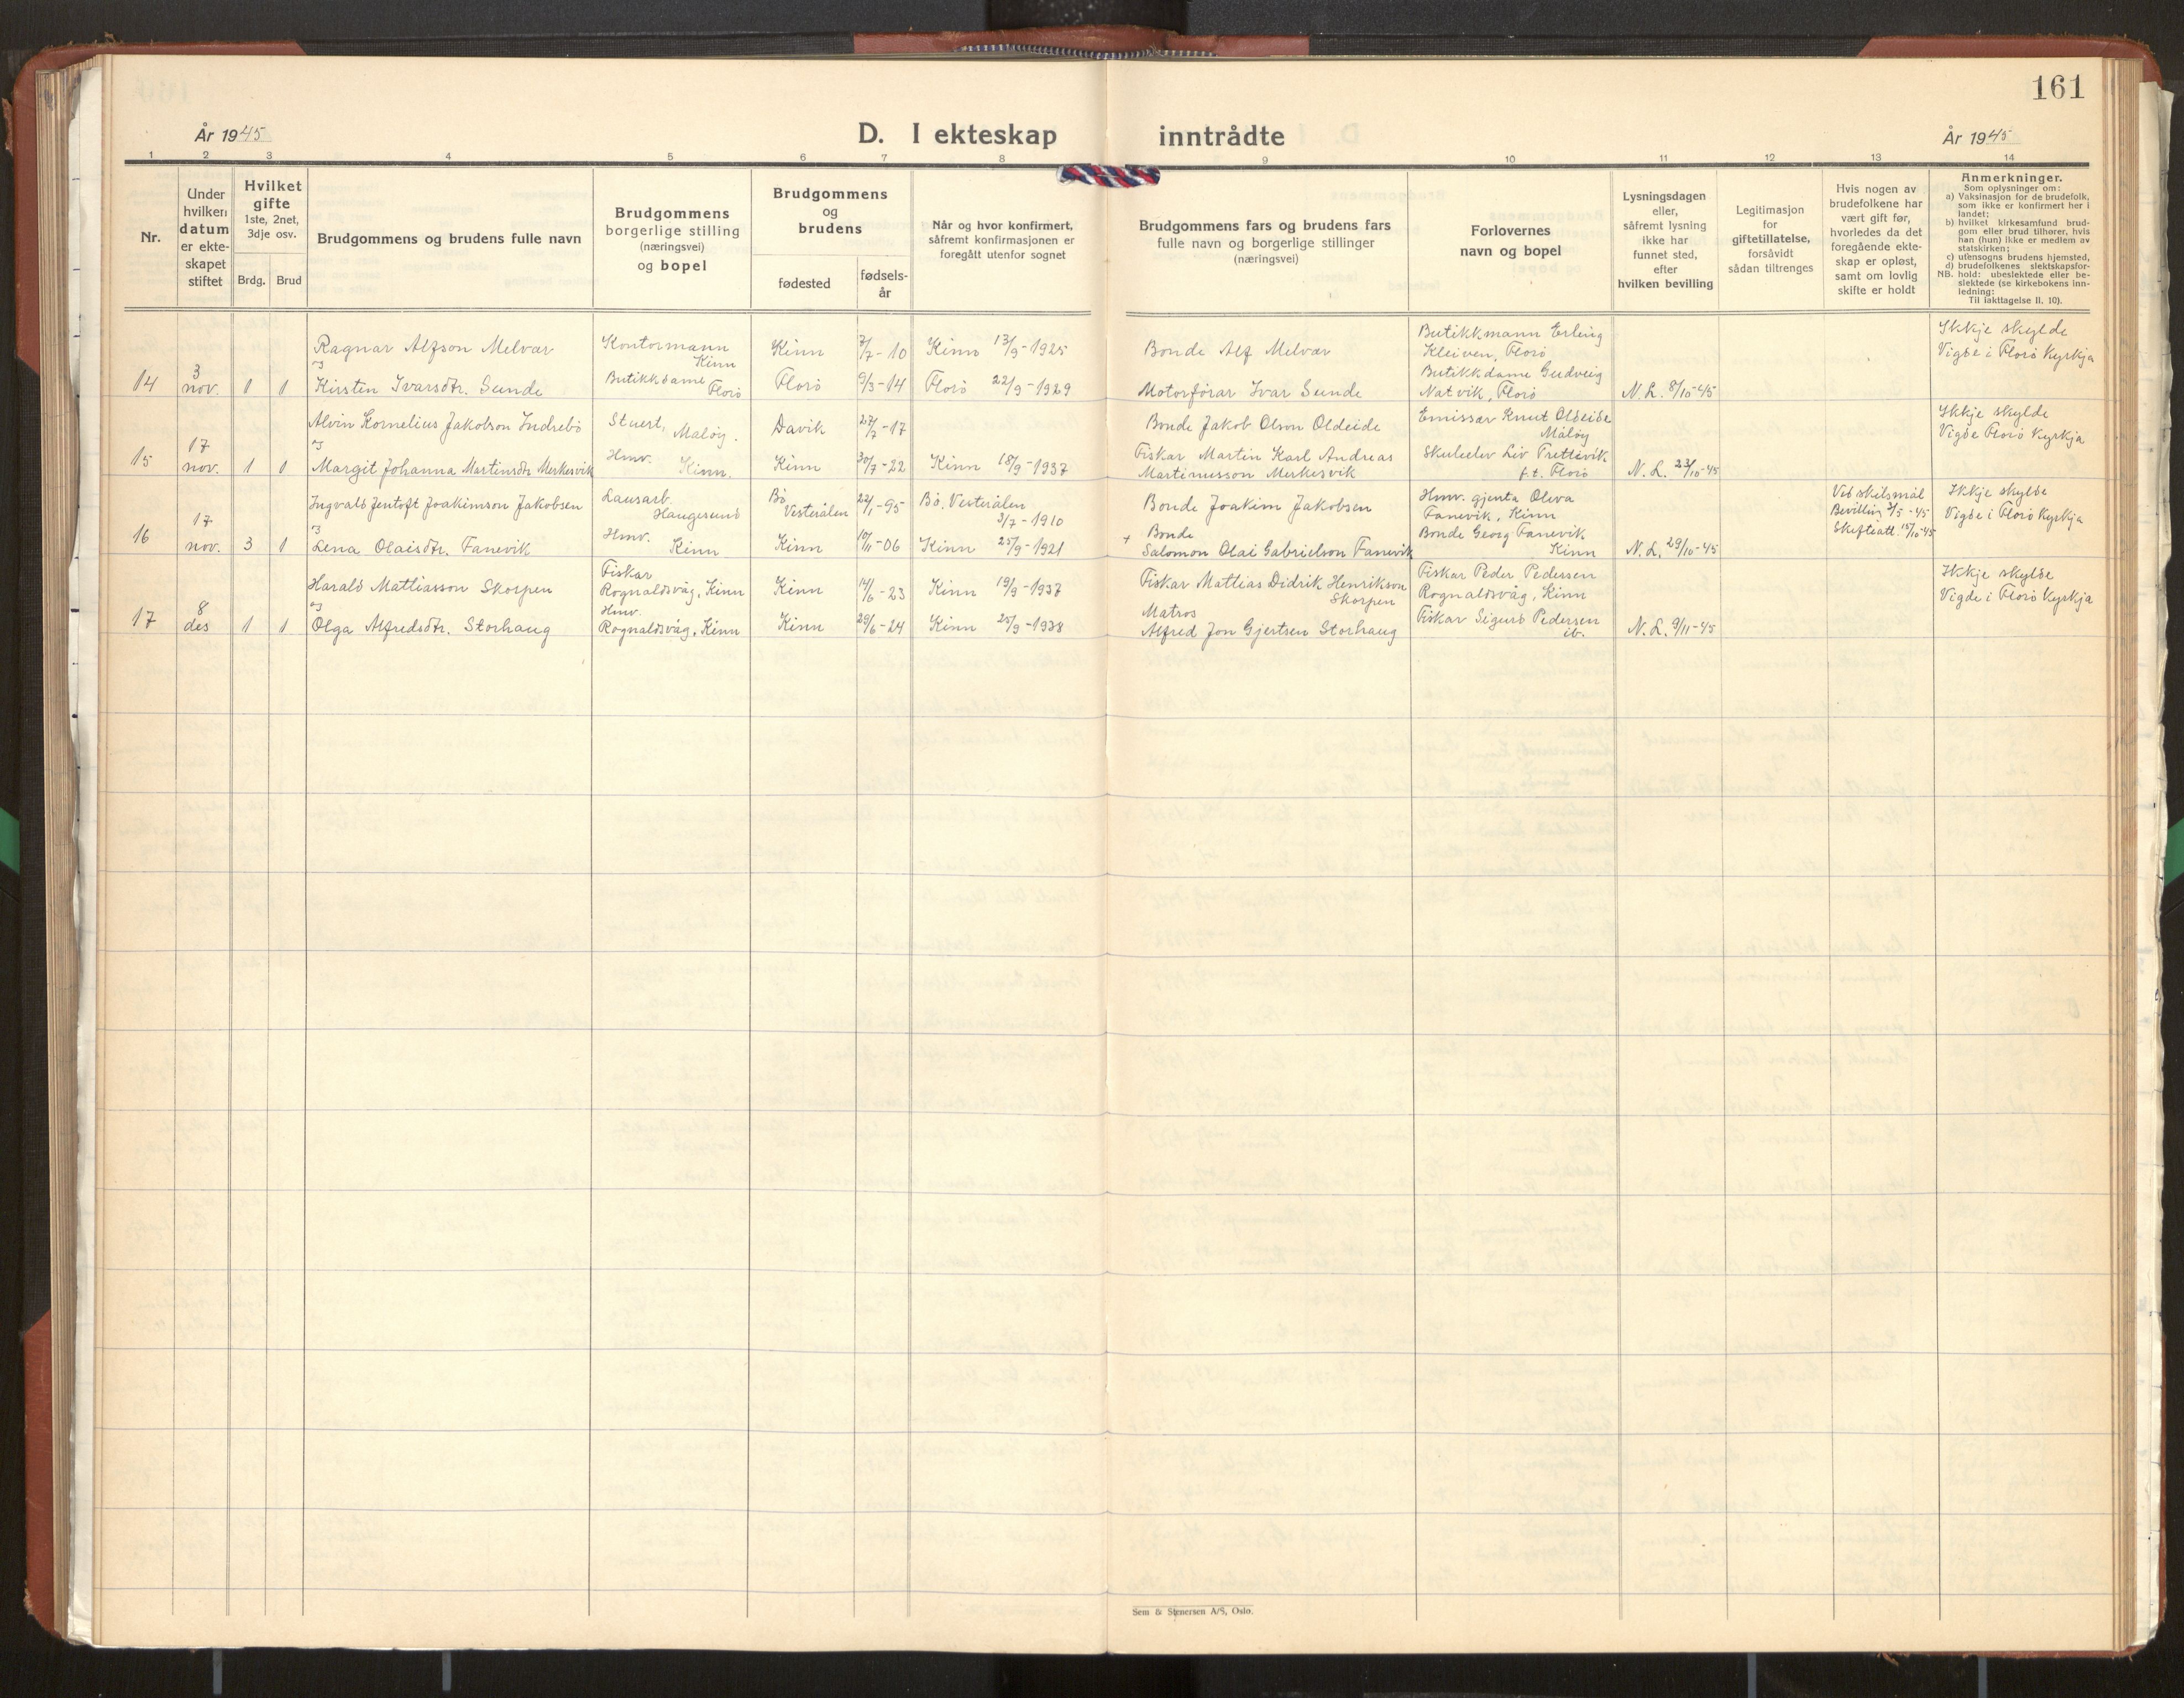 161
År 1945
D. I ekteskap inntrådte
År 1945
1 2 3 4 5 6 7 8 9 10 11 12 13 14
Nr.
Under
hvilken
datum
er ekte-
skapet
stiftet
Hvilket
gifte
1ste, 2net,
3dje osv.
Brdg. Brud
Brudgommens og brudens fulle navn
Brudgommens
borgerlige stilling
(næringsvei)
og bopel
Brudgommens
og
brudens
fødested
fødsels-
år
Når og hvor konfirmert,
såfremt konfirmasjonen er
foregått utenfor sognet
Brudgommens fars og brudens fars
fulle navn og borgerlige stillinger
(næringsvei)
Forlovernes
navn og bopel
Lysningsdagen
eller,
såfremt lysning
ikke har
funnet sted,
efter
hvilken bevilling
Legitimasjon
for
giftetillatelse,
forsåvidt
sådan tiltrenges
Hvis nogen av
brudefolkene har
vært gift før,
hvorledes da det
foregående ekte-
skap er opløst,
samt om lovlig
skifte er holdt
Anmerkninger.
Som oplysninger om:
a) Vaksinasjon for de brudefolk,
som ikke er konfirmert her i
landet;
b) hvilket kirkesamfund brud-
gom eller brud tilhører, hvis
han (hun) ikke er medlem av
statskirken;
c) utensogns brudens hjemsted,
d) brudefolkenes slektskapsfor-
NB. hold: ubeslektede eller be-
slektede (se kirkebokens inn-
ledning:
Til iakttagelse II. 10).
14
3
nov.
1 1
Ragnar Alfson Melvær
og
Kirsten Ivarsdtr. Sunde
Kontormann
Kinn
Butikkdame
Florø
Kinn 7/7-10 Kinn 13/9-1925
Florø 9/3-14 Florø 22/9-1929
Bonde Alf Melvær
Motorførar Ivar Sunde
Butikkmann Erling
Kleiven, Florø
Butikkdame Gudveig
Natvik, Florø
N. L. 8/10-45
Ikkje skylde
Vigde i Florø Kyrkja
15
17
nov.
1 1
Alvin Kornelius Jakobson Indrebø
og
Margit Johanna Martinsdtr Merkesvik
Stuert,
Måløy.
Hmv.
Kinn.
Davik 27/7-17
Kinn 30/7-22 Kinn 18/9-1937
Bonde Jakob Olson Oldeide
Fiskar Martin Karl Andreas
Martinusson Merkesvik
Emissær Knut Oldeide
Måløy
Skuleelev Liv Trettevik
f.t. Florø
N. L. 23/10-45
Ikkje skylde
Vigde Florø Kyrkja
16
17
nov.
3 1
Ingvald Jentoft Joakimson Jakobsen
og
Lena Olaisdtr. Fanevik
Lausarb.
Haugesund
Hmv.
Kinn
Bø
Vesterålen 22/1-95 Bø, Vesterålen
3/7-1910
Kinn 10/11-06 Kinn 25/9-1921
Bonde Joakim Jakobsen
+ Bonde
Salomon Olai Gabrielson Fanevik
Hmv. gjenta Oliva
Fanevik, Kinn
Bonde Georg Fanevik
Kinn
N. L. 29/10-45
Ved skilsmål
Bevilling 2/5-45
Skifteatt. 15/10-45
Ikkje skylde
Vigde i Florø Kyrkja
17
8
des
1 1
Harald Mattiasson Skorpen
og
Olga Alfredsdtr. Storhaug
Fiskar
Rognaldsvåg, Kinn
Hmv.
Rognaldsvåg, Kinn
Kinn 14/6-23 Kinn 19/9-1937
Kinn 29/6-24 Kinn 25/9-1938
Fiskar Mattias Didrik Henrikson
Skorpen
Matros
Alfred Jon Gjertsen Storhaug
Fiskar Peder Pedersen
Rognaldsvåg, Kinn
Fiskar Sigurd Pedersen
ib.
N. L. 9/11-45
Ikkje skylde
Vigde i Florø Kyrkja
Sem & Stenersen A/S, Oslo.